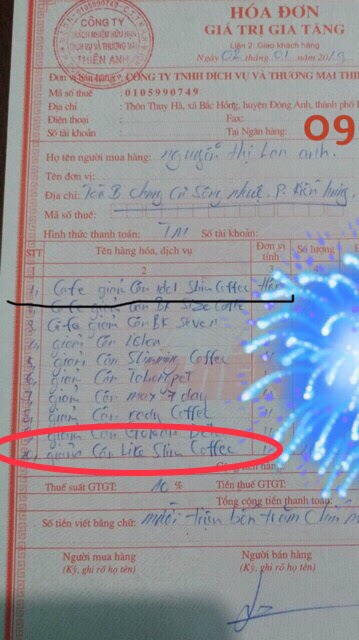 HÓA ĐƠN
GIÁ TRỊ GIA TĂNG
Liên 2: Giao khách hàng
CÔNG TY
TRÁCH NHIỆM HỮU HẠN
DỊCH VỤ VÀ THƯƠNG MẠI
THIÊN ANH
Ngày 02 tháng 01 năm 2019
Đơn vị bán hàng: CÔNG TY TNHH DỊCH VỤ VÀ THƯƠNG MẠI THI
Mã số thuế : 0105990749
Địa chỉ : Thôn Thụy Hà, xã Bắc Hồng, huyện Đông Anh, thành phố
Điện thoại : Fax:
Số tài khoản : Tại Ngân hàng:
09
Họ tên người mua hàng: Nguyễn Thị Lan Anh
Tên đơn vị:
Địa chỉ: Tòa B Chung Cư Sông Nhuệ, P. Kiến Hưng
Mã số thuế:
Hình thức thanh toán: TM Số tài khoản:
STT Tên hàng hóa, dịch vụ Đơn vị tính Số lượng
2 3
1 Cafe giảm Cân Idol Slim Coffee
Cafe giảm Cân
3 Cafe giảm Cân BK Seven
giảm Cân
5 giảm Cân Slimming Coffee
6 giảm Cân
7 giảm Cân max 7 day
8 giảm Cân Coffee
giảm Cân
10 giảm Cân Like Slim Coffee
Cộng tiền hàn
Thuế suất GTGT: 10 % Tiền thuế GTGT:
Tổng cộng tiền thanh toán:
Số tiền viết bằng chữ: mười bốn trăm
Người mua hàng Người bán hàng
(Ký, ghi rõ họ tên) (Ký, ghi rõ họ tên)